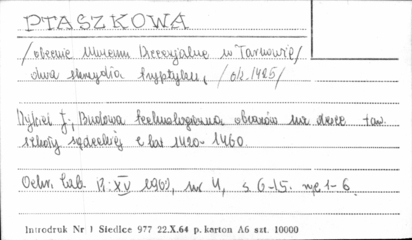 PTASZKOWA
/obecnie Muzeum Diecezjalne w Tarnowie/
dwa skrzydła tryptyku, /ok. 1425/
Dutkiewicz J.; Budowa technologiczna obrazów na desce tzw.
szkoły sądeckiej z lat 1420-1460.
Ochr. Zab. R: XV 1962, nr 4, s 6-15. ryc 1-6.
Introdruk Nr 1 Siedlce 977 22.X.64 p. karton A6 szt. 10000